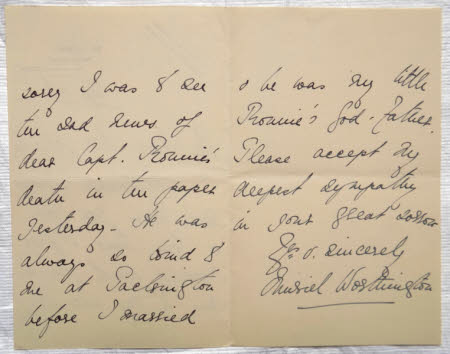 sorry I was to see
the sad news of
dear Capt. Ronnie's
death in the paper
yesterday - He was
always so kind to
me at Packington
before I married
& he was my little
Ronnie's God-Father.
Please accept my
deepest sympathy
in your great sorrow
Yrs v. sincerely
Muriel Worthington